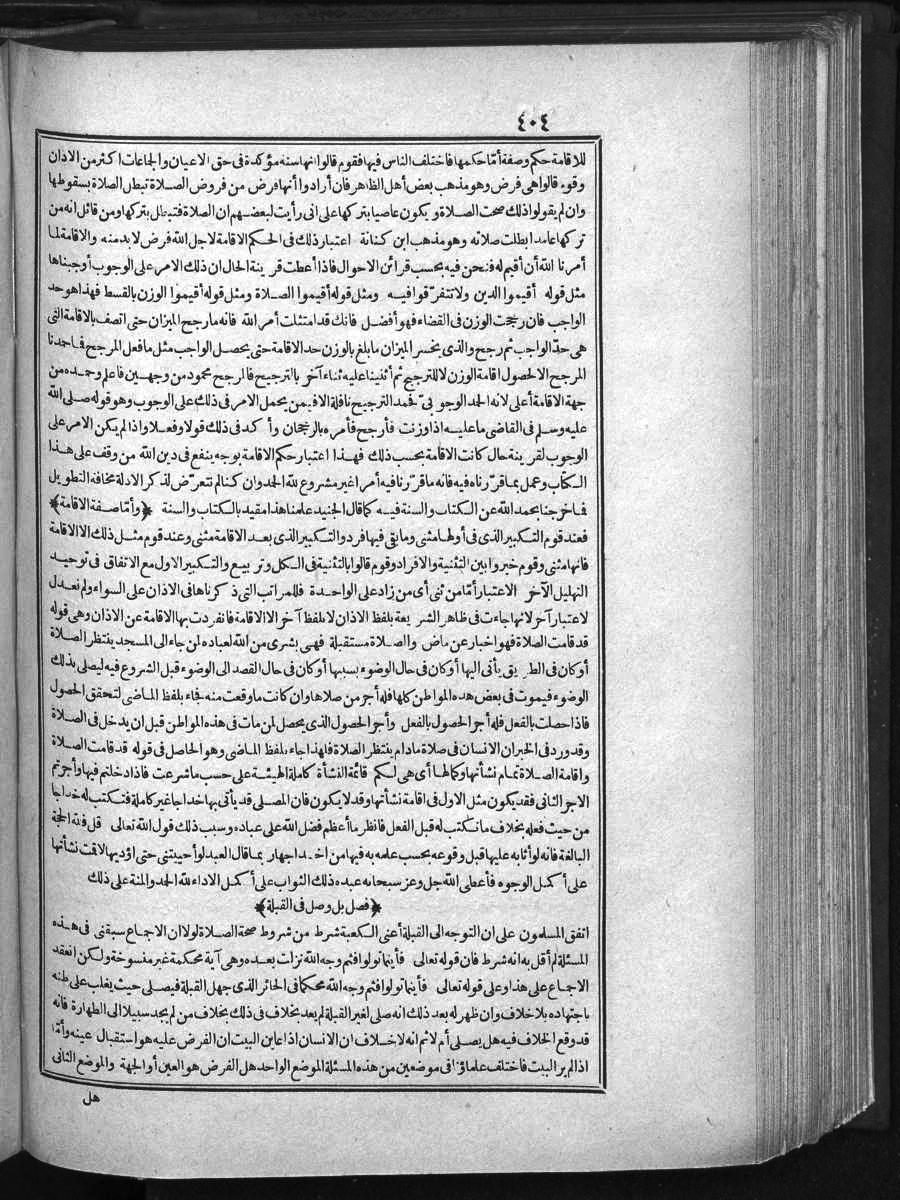 ٤٠٤
للاقامة حكم وصفة أما حكمها فاختلف الناس فيها فقوم قالوا انها سنه مؤكدة فى حق الاعيان والجاعات اكثر من الاذان
وقوم قالوا هى فرض وهو مذهب بعض أهل الظاهر فان أرادوا أنها فرض من فروض الصلاة تبطل الصلاة بسقوطها
وان لم يقولوا ذلك صحت الصلاة ويكون عاصيا بتركها على انى رأيت لبعضهم ان الصلاة فتبطل بتركها ومن قائل انه من
تركها عامدا بطلت صلاته وهو مذهب ابن كنانة اعتبار ذلك فى الحكم الاقامة لاجل الله فرض لا بد منه والاقامة لما
أمرنا الله أن أقيم له فنحن فيه بحسب قرائن الاحوال فاذا أعطت قرينة الحال ان ذلك الامر على الوجوب أوجبناها
مثل قوله أقيموا الدين ولا تتفرقوا فيه ومثل قوله أقيموا الصلاة ومثل قوله أقيموا الوزن بالقسط فهذا هو حد
الواجب فان رجحت الوزن فى القضاء فهو أفضل فانك قد امتثلت أمر الله فانه ما رجح الميزان حتى اتصف بالاقامة التى
هى حد الواجب ثم رجح والذى يخسر الميزان ما بلغ بالوزن حد الاقامة حتى يحصل الواجب مثل ما فعل المرجح فما حمدنا
المرجح الا لحصول اقامة الوزن لا للترجيح ثم أثنينا عليه ثناء آخر بالترجيح فالمرجح محمود من وجهين فاعلم وحمده من
جهة الاقامة أعلى لانه الحمد الوجوبى فحمد الترجيح نافلة الا فيمن يحمل الامر فى ذلك على الوجوب وهو قوله صلى الله
عليه وسلم فى القاضى ما عليه اذا وزنت فأرجح فأمره بالرجحان وأكد فى ذلك قولا وفعلا واذا لم يكن الامر على
الوجوب لقرينة حال كانت الاقامة بحسب ذلك فهذا اعتبار حكم الاقامة بوجه ينفع فى دين الله من وقف على هذا
الكتاب وعمل بما قررناه فيه فانه ما قررنا فيه أمرا غير مشروع لله الحمد وان كنا لم نتعرض لذكر الادلة مخافة التطويل
فما خرجنا بحمد الله عن الكتاب والسنة فيه كما قال الجنيد علمنا هذا مقيد بالكتاب والسنة ﴿وأما صفة الاقامة﴾
فعند قوم التكبير الذى فى أولها مثنى وما بقى فيها فرد والتكبير الذى بعد الاقامة مثنى وعند قوم مثل ذلك الا الاقامة
فانها مثنى وقوم خيروا بين التثنية والافراد وقوم قالوا بالتثنية فى الكل وتربيع والتكبير الاول مع الاتفاق فى توحيد
التهليل الآخر الاعتبار أما من ثنى أى من زاد على الواحدة فللمراتب التى ذكرناها فى الاذان على السواء ولم نعدل
لاعتبار آخر لانها جاءت فى ظاهر الشريعة بلفظ الاذان لا بلفظ آخر الا الاقامة فانفردت بها الاقامة عن الاذان وهى قوله
قد قامت الصلاة فهو اخبار عن ماض والصلاة مستقبلة فهى بشرى من الله لعباده لمن جاء الى المسجد ينتظر الصلاة
أو كان فى الطريق يأتى اليها أو كان فى حال الوضوء بسببها أو كان فى حال القصد الى الوضوء قبل الشروع فيه ليصلى بذلك
الوضوء فيموت فى بعض هذه المواطن كلها فله أجر من صلاها وان كانت ما وقعت منه فجاء بلفظ الماضى لتحقق الحصول
فاذا حصلت بالفعل فله أجر الحصول بالفعل وأجر الحصول الذى يحصل لمن مات فى هذه المواطن قبل ان يدخل فى الصلاة
وقد ورد فى الخبر ان الانسان فى صلاة مادام ينتظر الصلاة فلهذا جاء بلفظ الماضى وهو الحاصل فى قوله قد قامت الصلاة
واقامة الصلاة تمام نشأتها وكمالها أى هى لكم قائمة النشأة كاملة الهيئة على حسب ما شرعت فاذا دخلتم فيها وأجرتم
الاجر الثانى فقد يكون مثل الاول فى اقامة نشأتها وقد لا يكون فان المصلى قد يأتى بها خداجا غير كاملة فتكتب له خداجا
من حيث فعله بخلاف ما تكتب له قبل الفعل فانظر ما أعظم فضل الله على عباده وسبب ذلك قول الله تعالى قل فلله الحجة
البالغة فانه لو أثابه عليها قبل وقوعه بحسب علمه به فيها من اخداجها ربما قال العبد لو أحييتنى حتى اؤديها لاقمت نشأتها
على أكمل الوجوه فأعطى الله جل وعز سبحانه عبده ذلك الثواب على أكمل الاداء لله الحمد والمنة على ذلك
﴿فصل بل وصل فى القبلة﴾
اتفق المسلمون على ان التوجه الى القبلة أعنى الكعبة شرط من شروط صحة الصلاة لولا ان الاجماع سبقنى فى هذه
المسئلة لم أقل به انه شرط فان قوله تعالى فأينما تولوا فثم وجه الله نزلت بعده وهى آية محكمة غير منسوخة ولكن انعقد
الاجماع على هذا وعلى قوله تعالى فأينما تولوا فثم وجه الله محكما فى الحائر الذى جهل القبلة فيصلى حيث يغلب على ظنه
باجتهاده بلا خلاف وان ظهر له بعد ذلك انه صلى لغير القبلة لم يعد بخلاف فى ذلك بخلاف من لم يجد سبيلا الى الطهارة فانه
قد وقع الخلاف فيه هل يصلى أم لا ثم انه لا خلاف ان الانسان اذا عاين البيت ان الفرض عليه هو استقبال عينه وأما
اذا لم ير البيت فاختلف علماؤنا فى موضعين من هذه المسئلة الموضع الواحد هل الفرض هو العين أو الجهة والموضع الثانى
هل